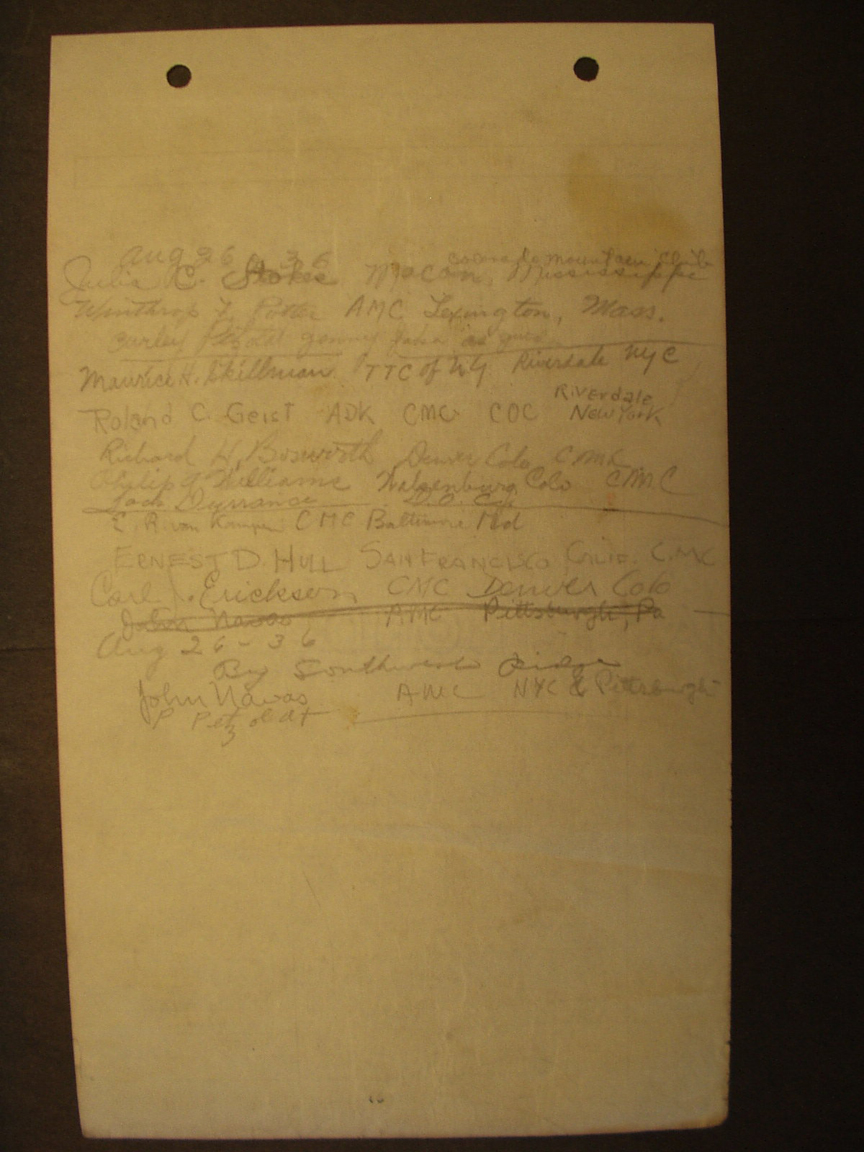 Aug 26, 36 Colorado Mountain Club
Julia C. Stokes Macon, Mississippi
Winthrop T. Potter AMC Lexington, Mass.
Petzoldt as guide
Maurice H. Skillman TTC of NY Riverdale NYC
Riverdale
Roland C. Geist ADK CMC COC New York
Richard H. Bosworth Denver Colo CMC
Philip G Williams Walsenburg Colo CMC
Jack Durrance
E. R. von CMC Baltimore Md
ERNEST D. HULL SAN FRANCISCO CALIF. CMC
Carl J. Erickson CMC Denver Colo
John Navas AMC Pittsburgh, Pa
Aug 26 - 36
By Southwest Ridge
John Navas AMC NYC & Pittsburgh
P Petzoldt